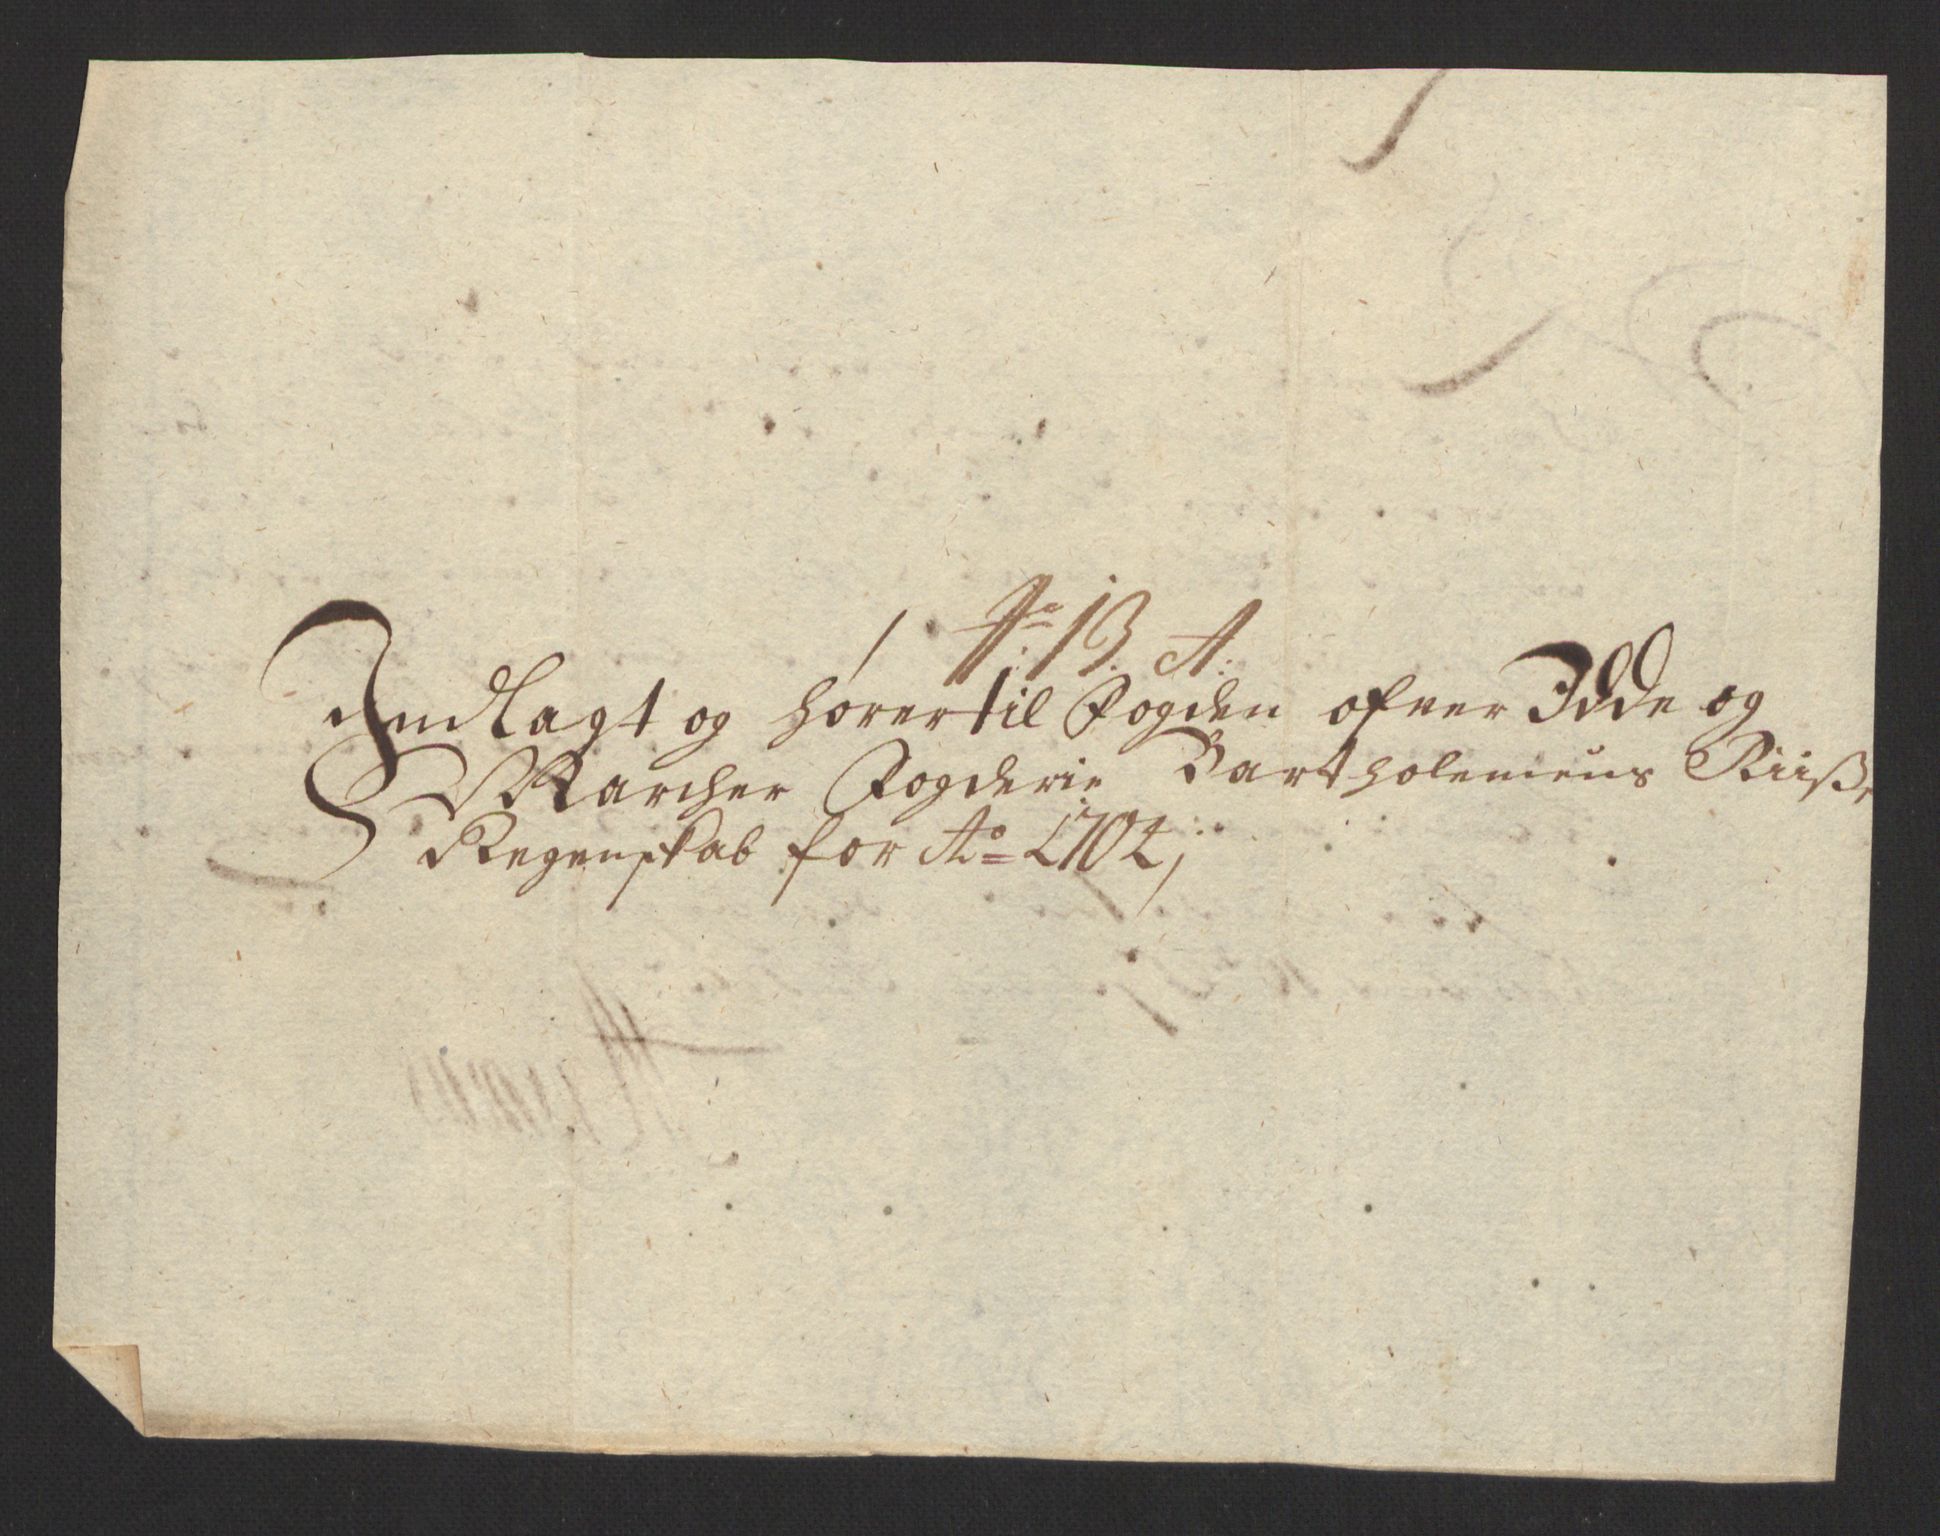 No 13. A.
Indlagt og hører til Fogden ofver Idde og
Marcher Fogderie Bartholemeus Riiß,
Regenskab for Ao 1704;